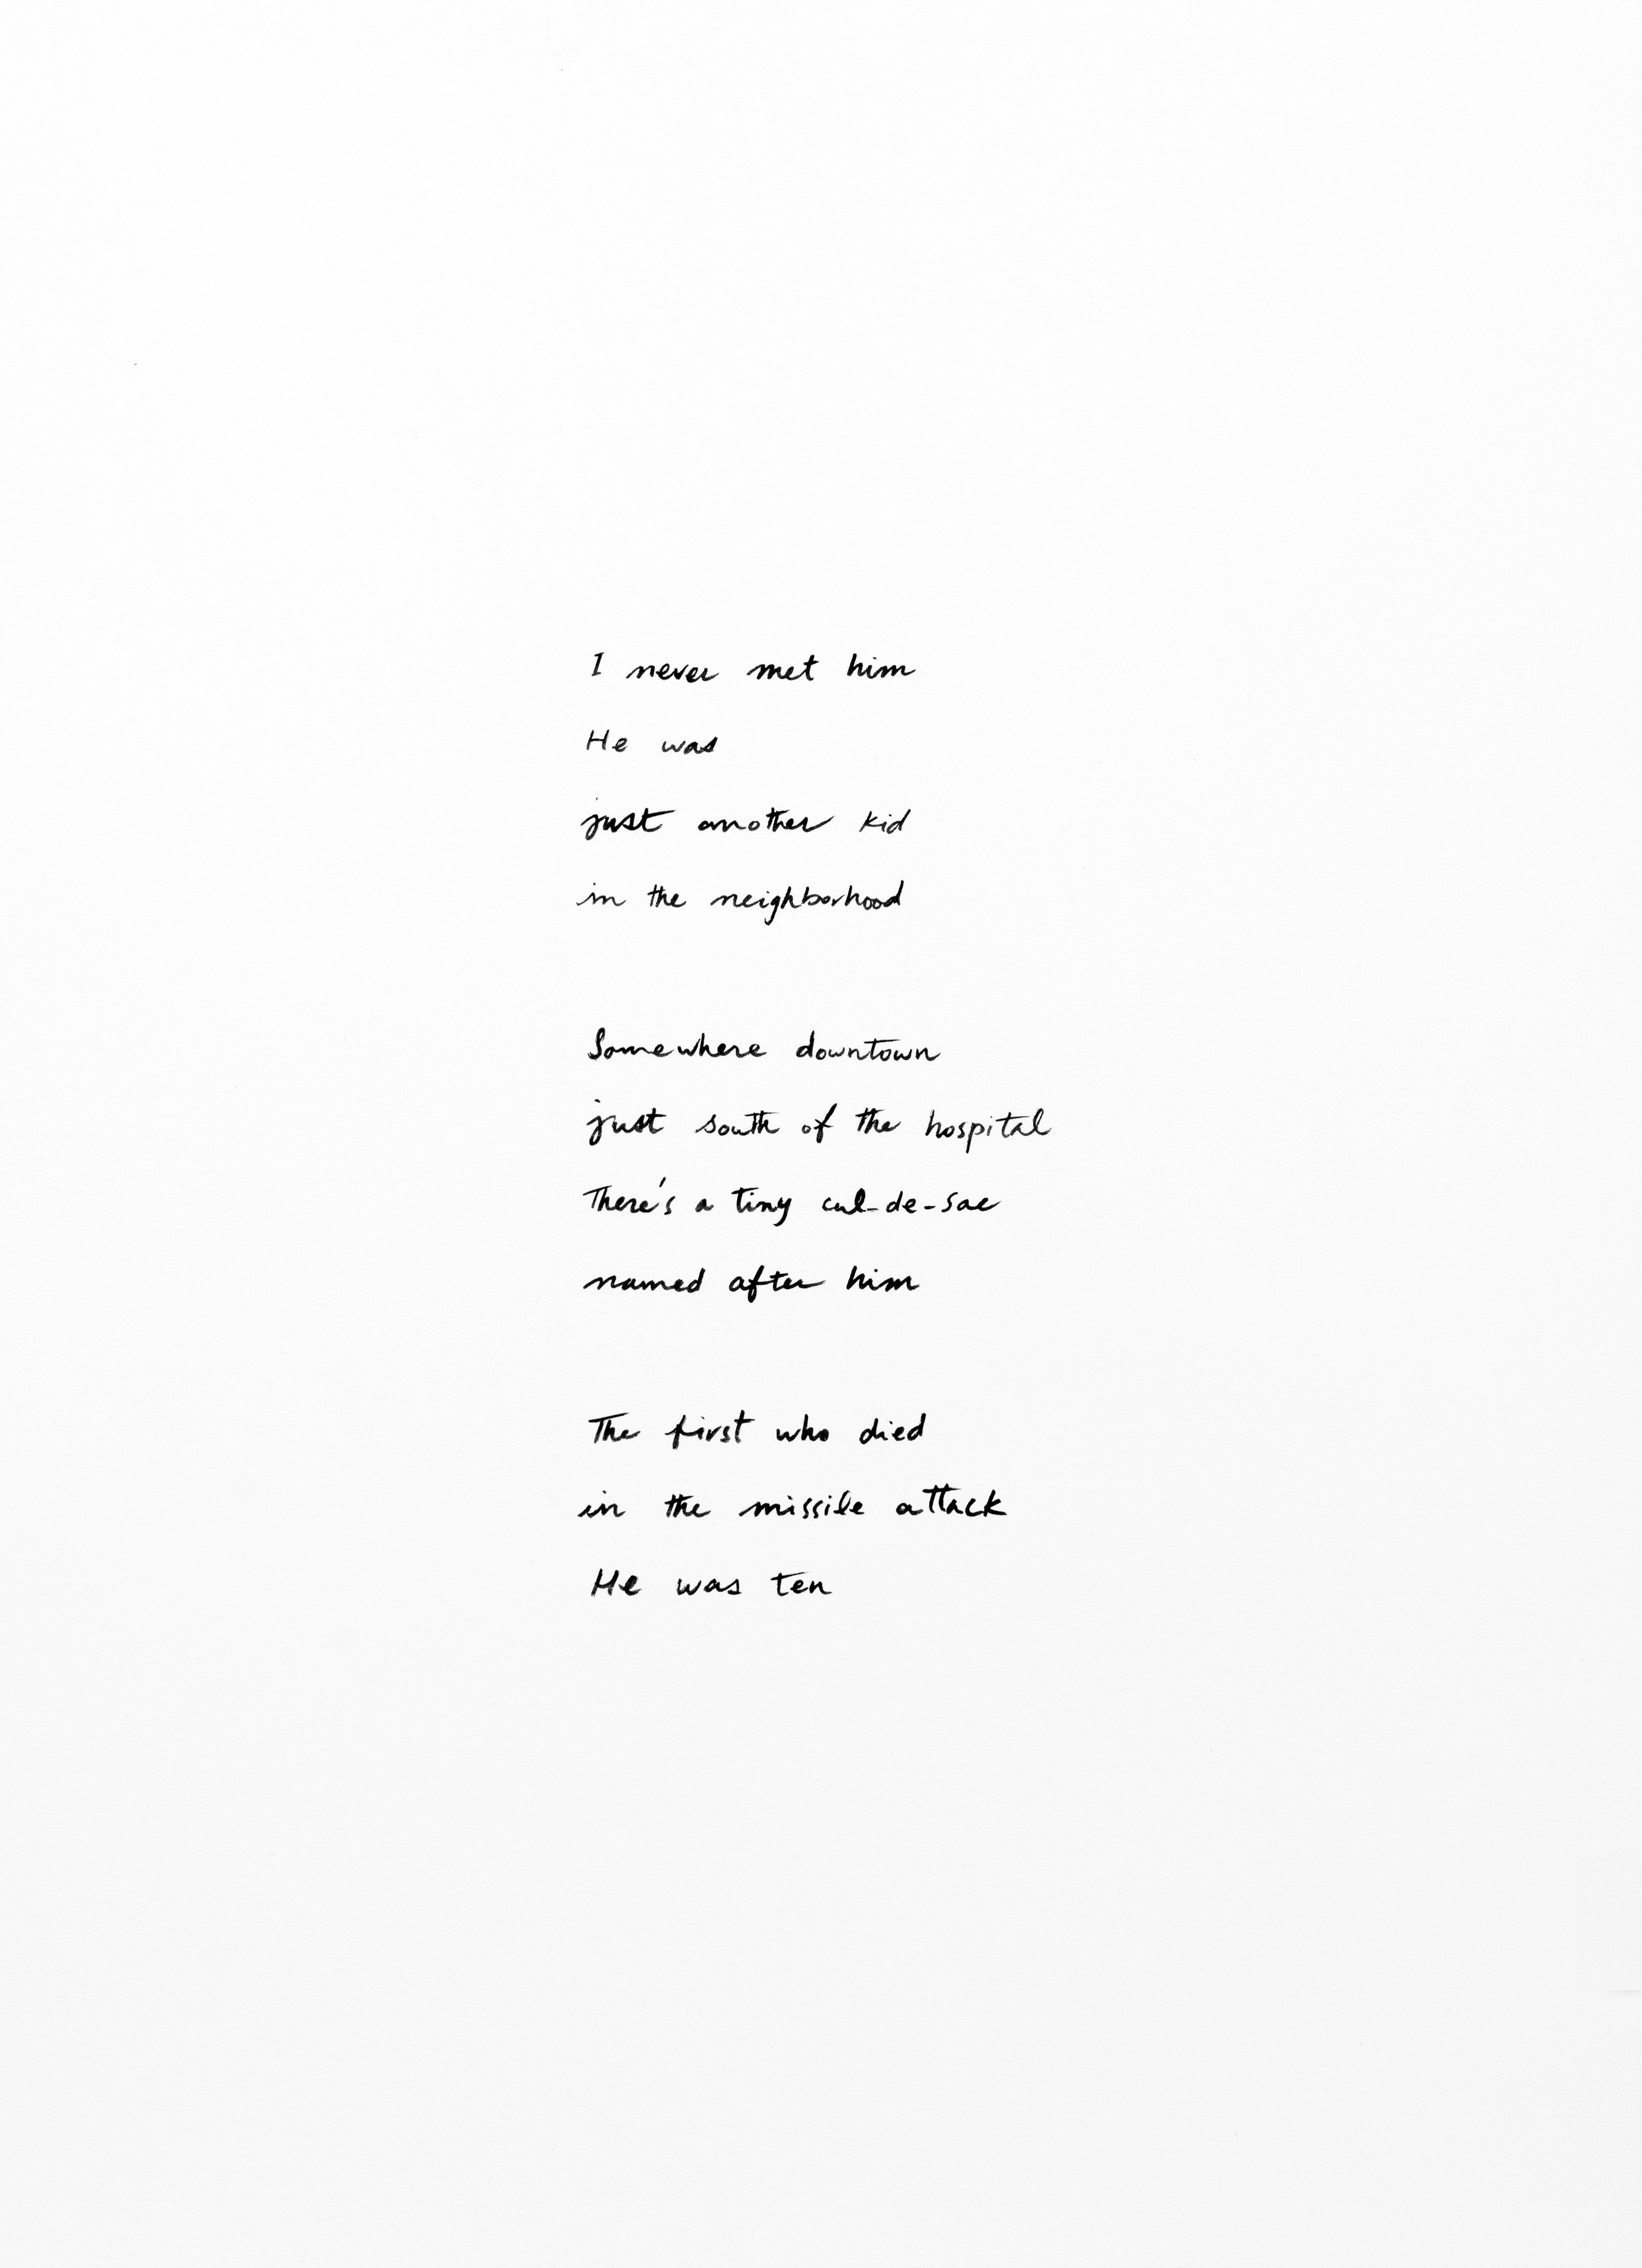 I never met him
He was
just another kid
in the neighborhood
Somewhere downtown
just south of the hospital
There's a tiny cul-de-sac
named after him
The first who died
in the missile attack
He was ten